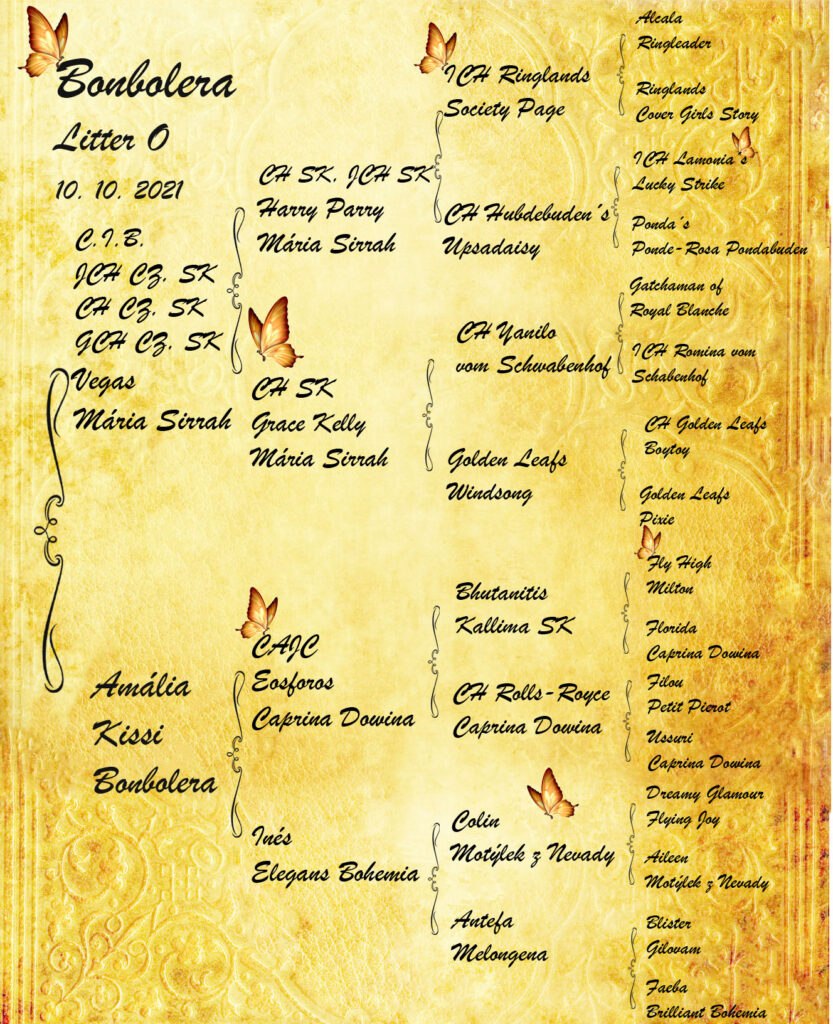 Bonbolera
Litter O
10. 10. 2021
C.I.B.
JCH CZ. SK
CH CZ. SK
GCH CZ. SK
Vegas
Mária Sirrah
Amália
Kissi
Bonbolera
CH SK. JCH SK
Harry Parry
Mária Sirrah
CH SK
Grace Kelly
Mária Sirrah
CAJC
Eosforos
Caprina Dowina
Inés
Elegans Bohemia
ICH Ringlands
Society Page
CH Hubdebuden´s
Upsadaisy
CH Yanilo
vom Schwabenhof
Golden Leafs
Windsong
Bhutanitis
Kallima SK
CH Rolls-Royce
Caprina Dowina
Colin
Motýlek z Nevady
Antefa
Melongena
Alcala
Ringleader
Ringlands
Cover Girls Story
ICH Lamonia´s
Lucky Strike
Ponda´s
Ponde-Rosa Pondabuden
Gatchaman of
Royal Blanche
ICH Romina vom
Schabenhof
CH Golden Leafs
Boytoy
Golden Leafs
Pixie
Fly High
Milton
Florida
Caprina Dowina
Filou
Petit Pierot
Ussuri
Caprina Dowina
Dreamy Glamour
Flying Joy
Aileen
Motýlek z Nevady
Blister
Gilovam
Faeba
Brilliant Bohemia